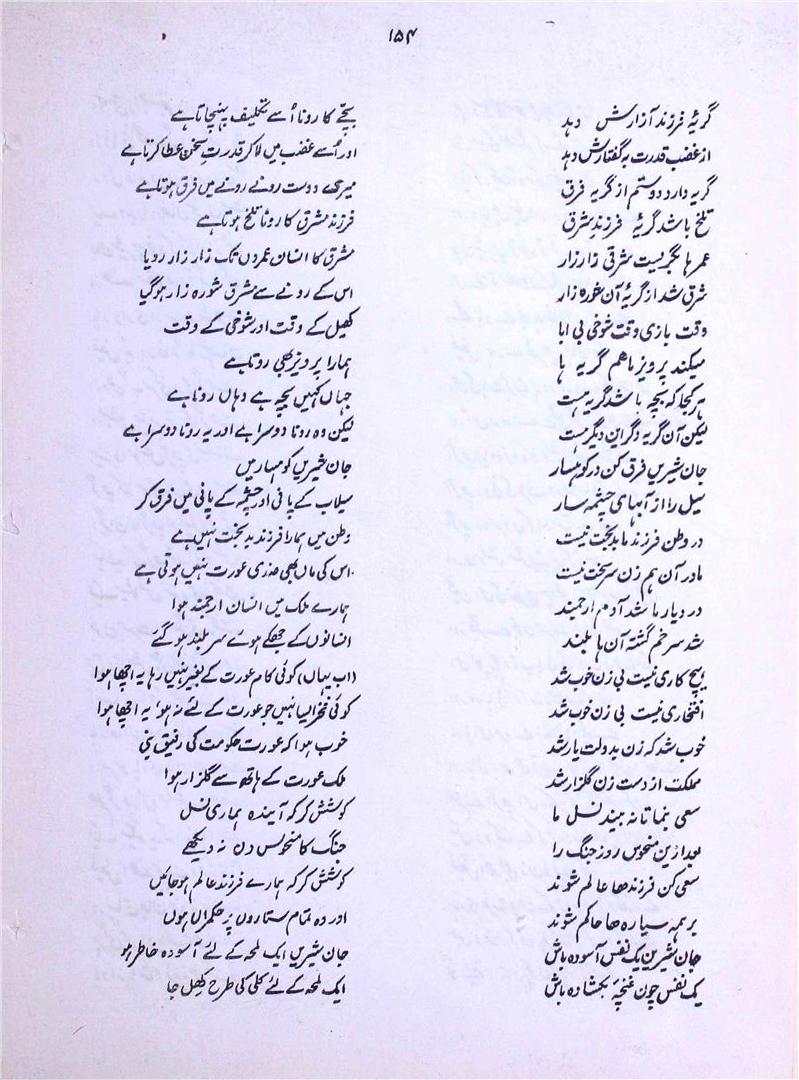 ۱۵۴
گریهٔ فرزند آزارش دہد
بچے کا رونا اُسے تکلیف پہنچاتا ہے
از غضب قدرت به گفتارش دہد
اور اُسے غضب میں لاکر قدرتِ سخن عطا کرتا ہے
گریه دارد دوستم از گریه فرق
میرے دوست رونے رونے میں فرق ہوتا ہے
تلخ باشد گریهٔ فرزند شرق
فرزند مشرق کا رونا تلخ ہوتا ہے
عمرها بگریست شرقی زار زار
مشرق کا انسان عمروں تک زار زار رویا
شرق شد از گریهٔ آن شوره زار
اس کے رونے سے مشرق شورہ زار ہوگیا
وقت بازی وقت شوخی بی ابا
کھیل کے وقت اور شوخی کے وقت
میکند پرویز ما هم گریه ہا
ہمارا پرویز بھی روتا ہے
ہر کجا که بچه باشد گریه ہست
جہاں کہیں بچہ ہے وہاں رونا ہے
لیکن آن گریه دگر این دیگرست
لیکن وہ رونا دوسرا ہے اور یہ رونا دوسرا ہے
جان شیرین فرق کن در کوہسار
جان شیریں کوہسار میں
سیل را از آبہای چشمه سار
سیلاب کے پانی اور چشمہ کے پانی میں فرق کر
در وطن فرزند ما بدبخت نیست
وطن میں ہمارا فرزند بدبخت نہیں ہے
مادر آن ہم زن سرسخت نیست
اس کی ماں بھی ضدی عورت نہیں ہوتی ہے
در دیار ما شد آدم ارجمند
ہمارے ملک میں انسان ارجمند ہوا
شد سر خم گشته آن ہا بلند
انسانوں کے جھکے ہوئے سر بلند ہو گئے
ہیچ کاری نیست بی زن خوب شد
(اب یہاں) کوئی کام عورت کے بغیر نہیں رہا یہ اچھا ہوا
افتخاری نیست بی زن خوب شد
کوئی فخر ایسا نہیں جو عورت کے لئے نہ ہو، یہ اچھا ہوا
خوب شد که زن به دولت یار شد
خوب ہوا کہ عورت حکومت کی رفیق بنی
مملکت از دست زن گلزار شد
ملک عورت کے ہاتھ سے گلزار ہوا
سعی بنما تا نه بیند نسل ما
کوشش کر کہ آیندہ ہماری نسل
بعد ازین منحوس روز جنگ را
جنگ کا منحوس دن نہ دیکھے
سعی کن فرزندها عالم شوند
کوشش کر کہ ہمارے فرزند عالم ہو جائیں
بر ہمه سیاره ها حاکم شوند
اور وہ تمام ستاروں پر حکمراں ہوں
جان شیرین یک نفس آسوده باش
جان شیریں ایک لمحہ کے لئے آسودہ خاطر ہو
یک نفس چون غنچهٔ بکشاده باش
ایک لمحہ کے لئے کلی کی طرح کھل جا